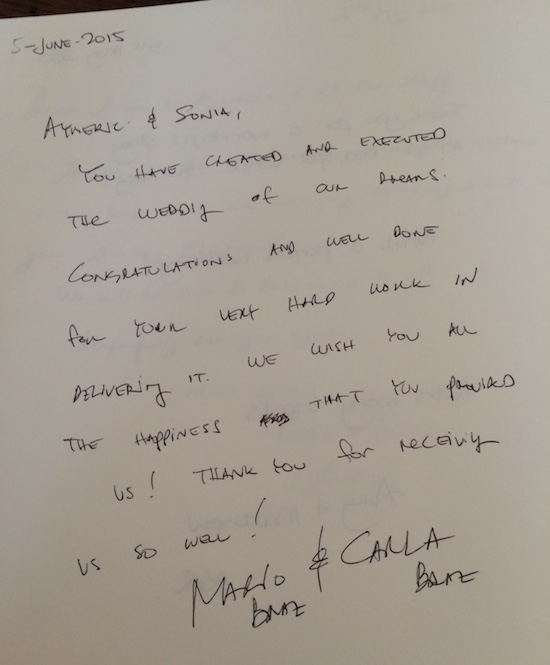 5-JUNE-2015
AYMERIC & SONIA,
YOU HAVE CREATED AND EXECUTED
THE WEDDIg of OUR DREAMS.
CONGRATULATIONS AND WELL DONE
for YOUR VERY HARD WORK IN
DELIVERINg IT. WE WISH YOU ALL
THE HAPPINESS THAT YOU PROVIDED
US! THANK YOU for RECEIVINg
US SO WELL!
MARIO & CARLA
BRAZ BRAZ